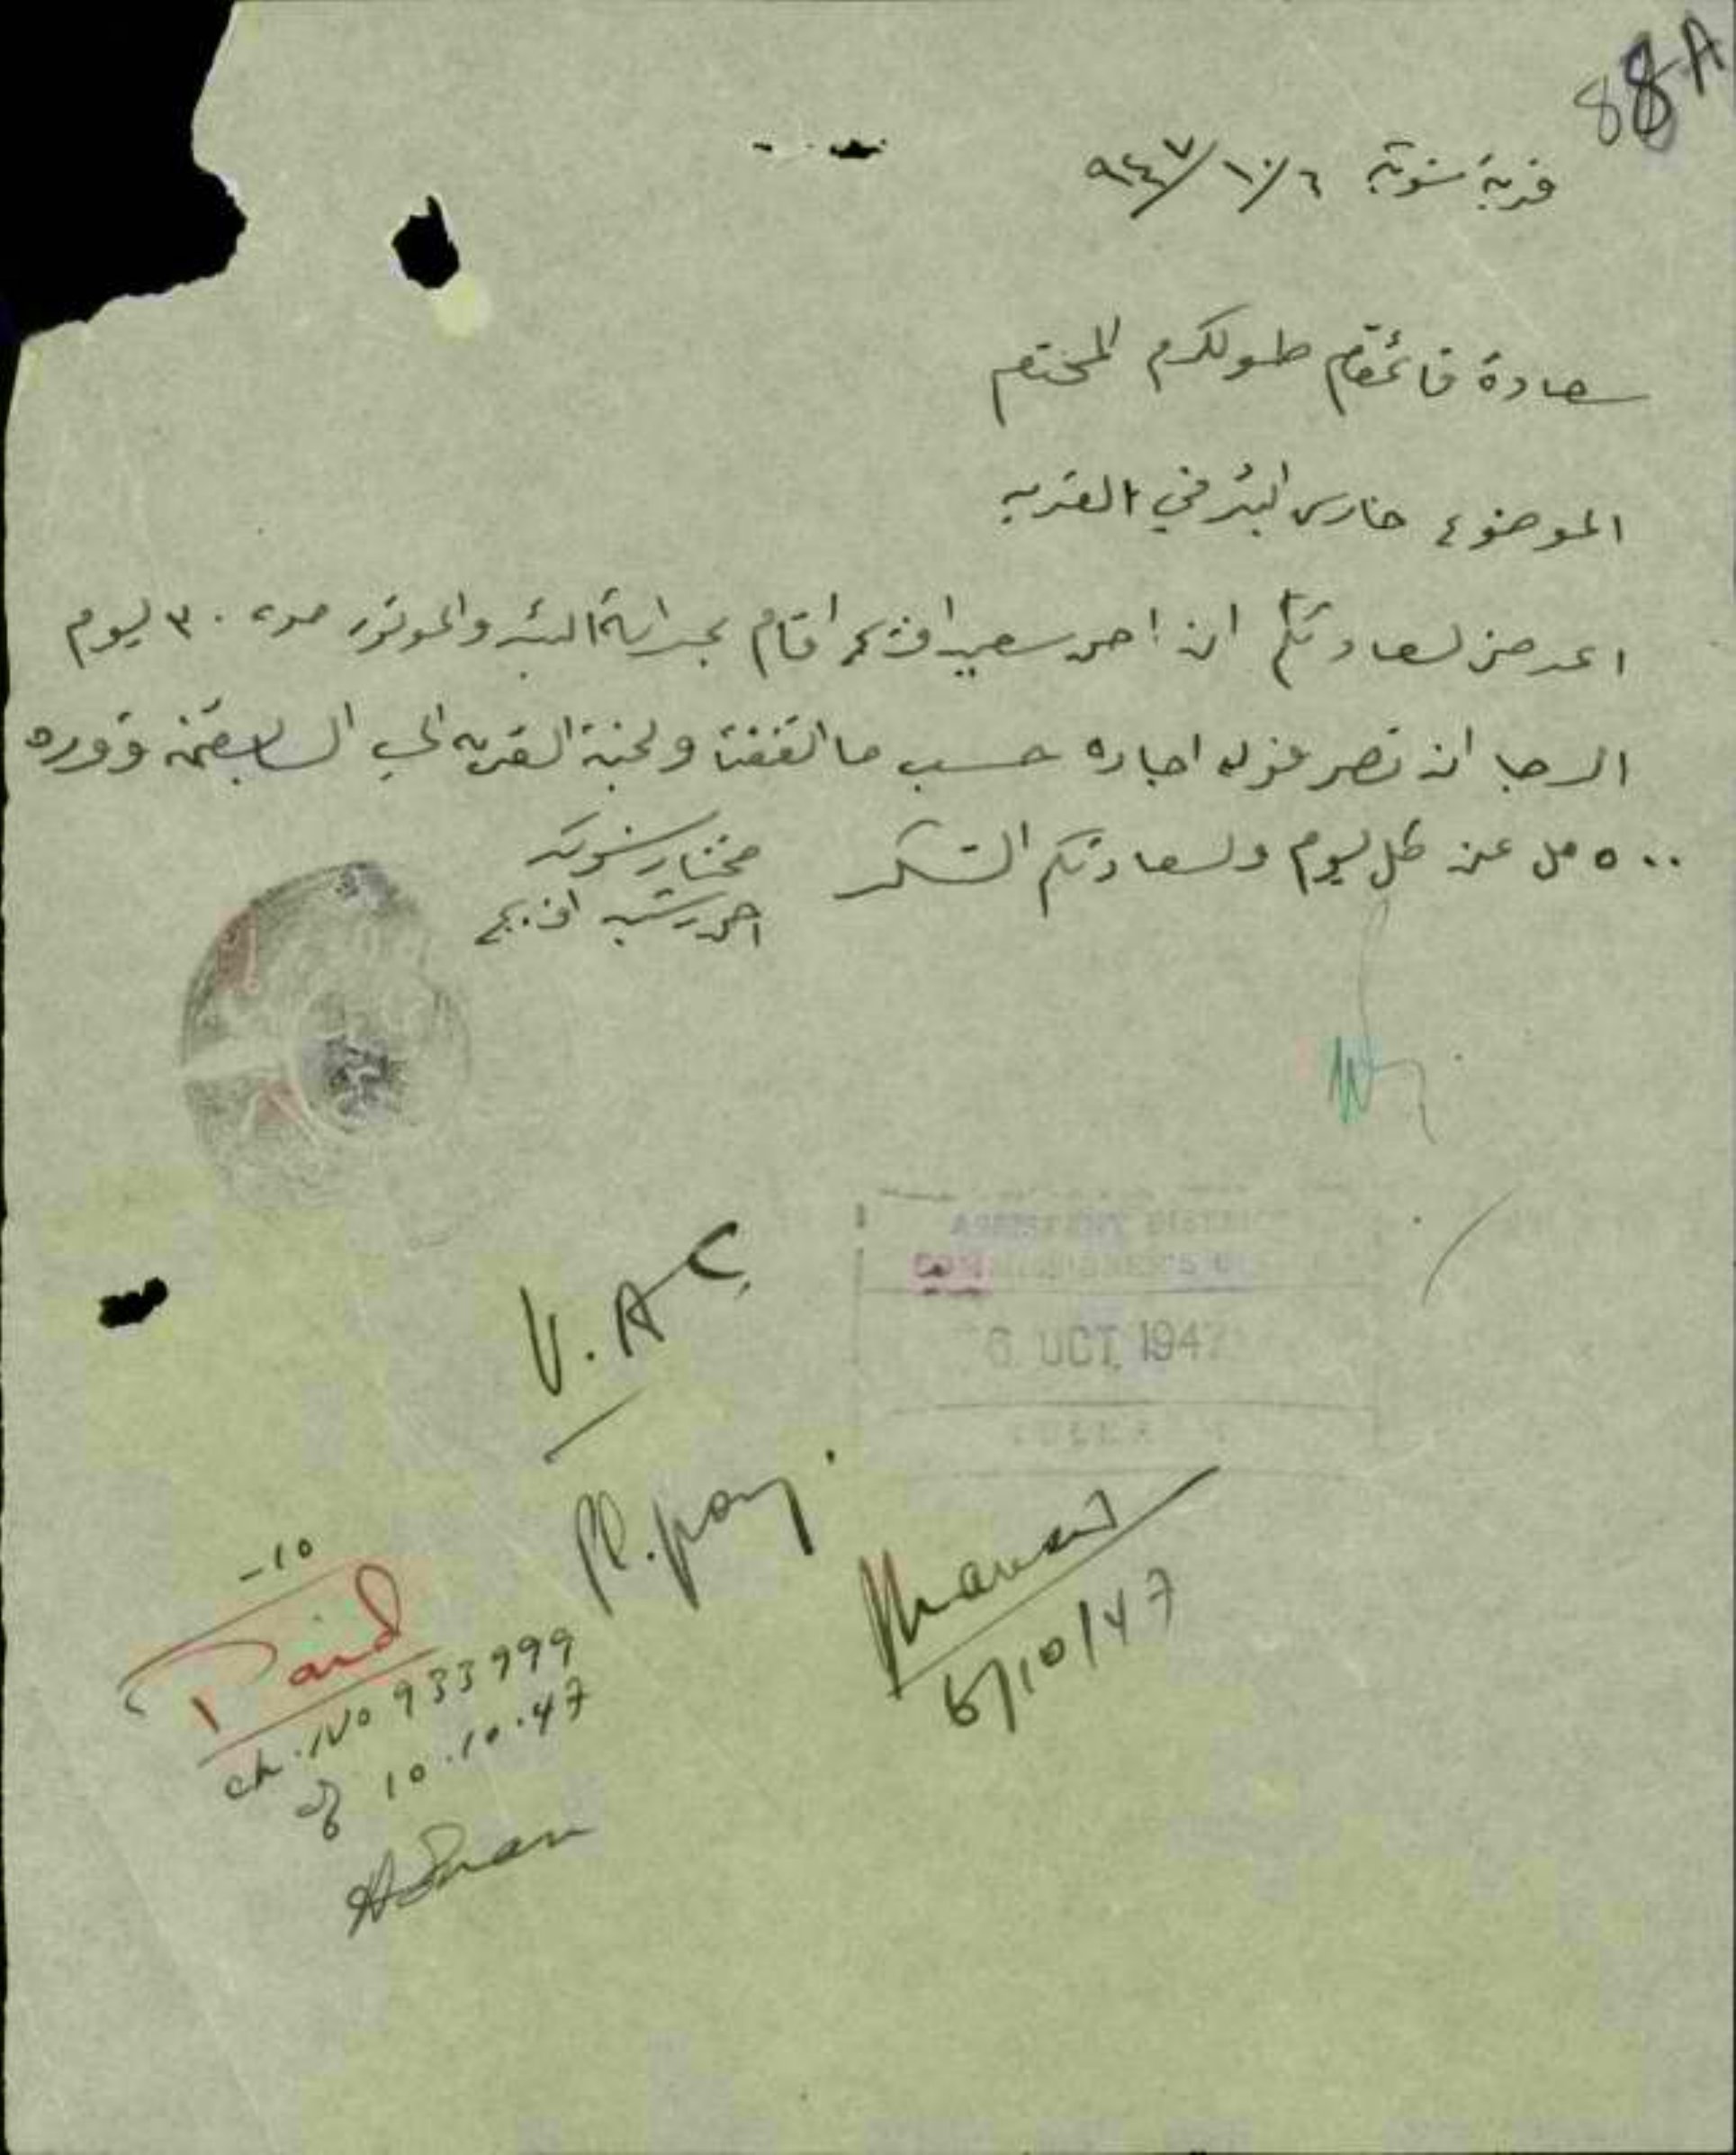 88A
قرية شويكة ٦/١٠/٩٤٧
سعادة قائمقام طولكرم المحترم
الموضوع حارس البئر في القريه
اعرض لسعادتكم ان احمد سعيد قام بحراسة البئر والموتور مدة ٣٠ ليوم
الرجا ان تصرفوله اجاره حسب ما اتفقنا ولجنة القريه الي السابقة وقدره
٥٠٠ مل عن كل ليوم ولسعادتكم الشكر
مختار شويكه
احمد رشيد
ASSISTANT DISTRICT
COMMISSIONER'S
6 OCT. 1947
V.A.C.
Pl. pay.
6/10/47
-10
Paid
ch. No 933999
of 10.10.47